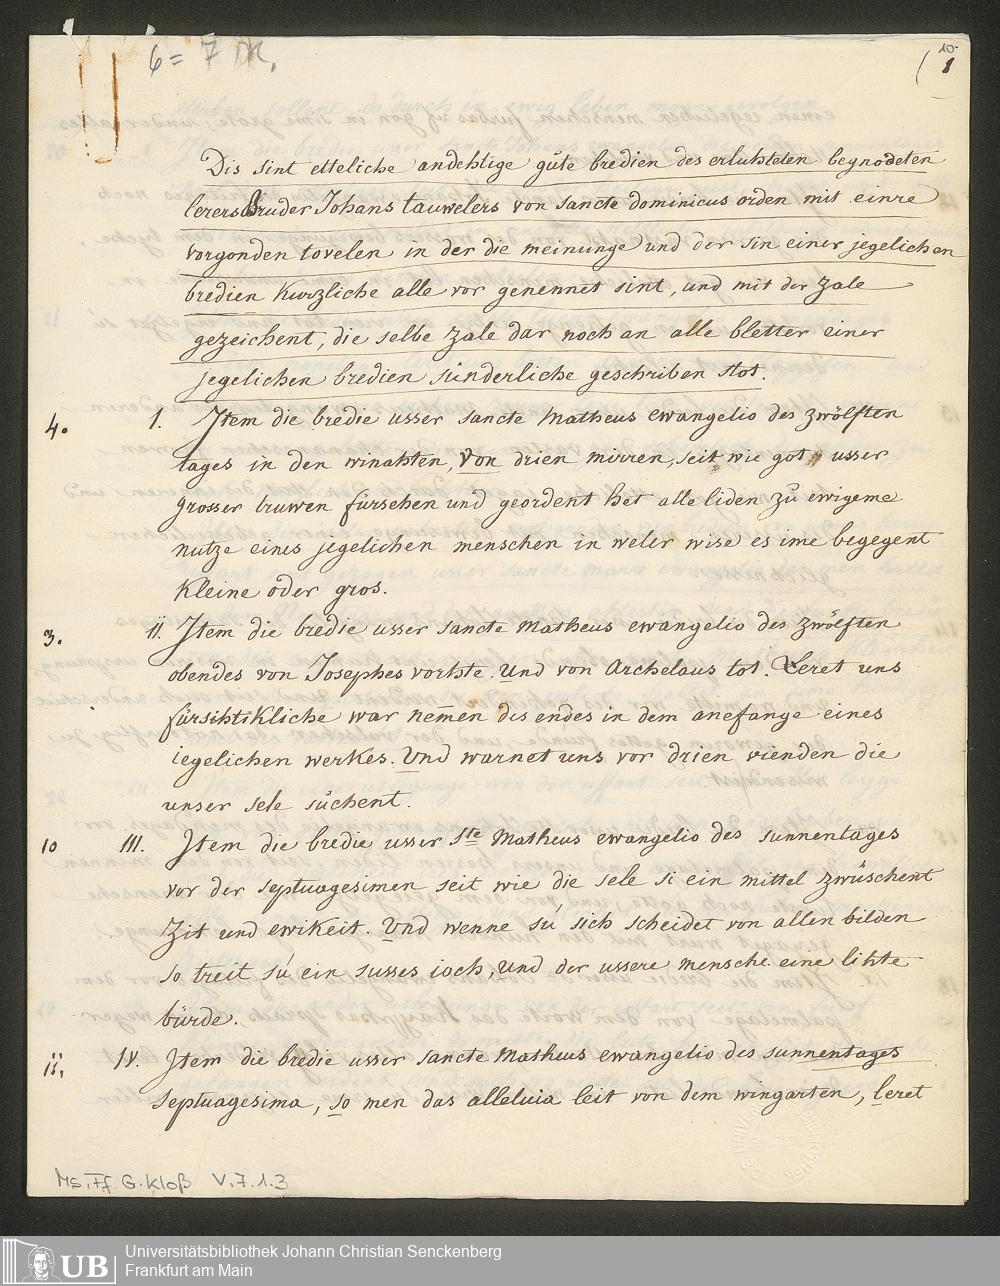 6 = 7 M.
10
1
Dis sint etteliche andehtige güte bredien des erluhteten begnodeten
lerers Bruder Johans tauwelers von sancte dominicus orden mit einre
vorgonden tovelen in der die meinunge und der sin einer jegelichen
bredien kurzliche alle vor genennet sint, und mit der zale
gezeichent, die selbe zale dar noch an alle bletter einer
jegelichen bredien sünderliche geschriben stot.
4. I. Item die bredie usser sancte Matheus ewangelio des zwölften
tages in den winahten, von drien mirren, seit wie got usser
grosser truwen fürsehen und geordent het alle liden zů ewigeme
nutze eines jegelichen menschen in weler wise es ime begegent
kleine oder gros.
3. II. Item die bredie usser sancte Matheus ewangelio des zwölften
obendes von Josephes vorhte. Und von Archelaus tot. Leret uns
fürsihtikliche war nemen des endes in dem anefange eines
iegelichen werkes. Und warnet uns vor drien vienden die
unser sele süchent.
10 III. Item die bredie usser Ste Matheus ewangelio des sunnentages
vor der septuagesimen seit wie die sele si ein mittel zwüschent
Zit und ewikeit. Und wenne sú sich scheidet von allen bilden
so treit sú ein susses ioch, und der ussere mensche eine lihte
bürde.
ii. IV. Item die bredie usser sancte Matheus ewangelio des sunnentages
Septuagesima, so men das alleluia leit von dem wingarten, leret
Ms. Ff. G. Kloß V.7.1.3
UB Universitätsbibliothek Johann Christian Senckenberg
Frankfurt am Main